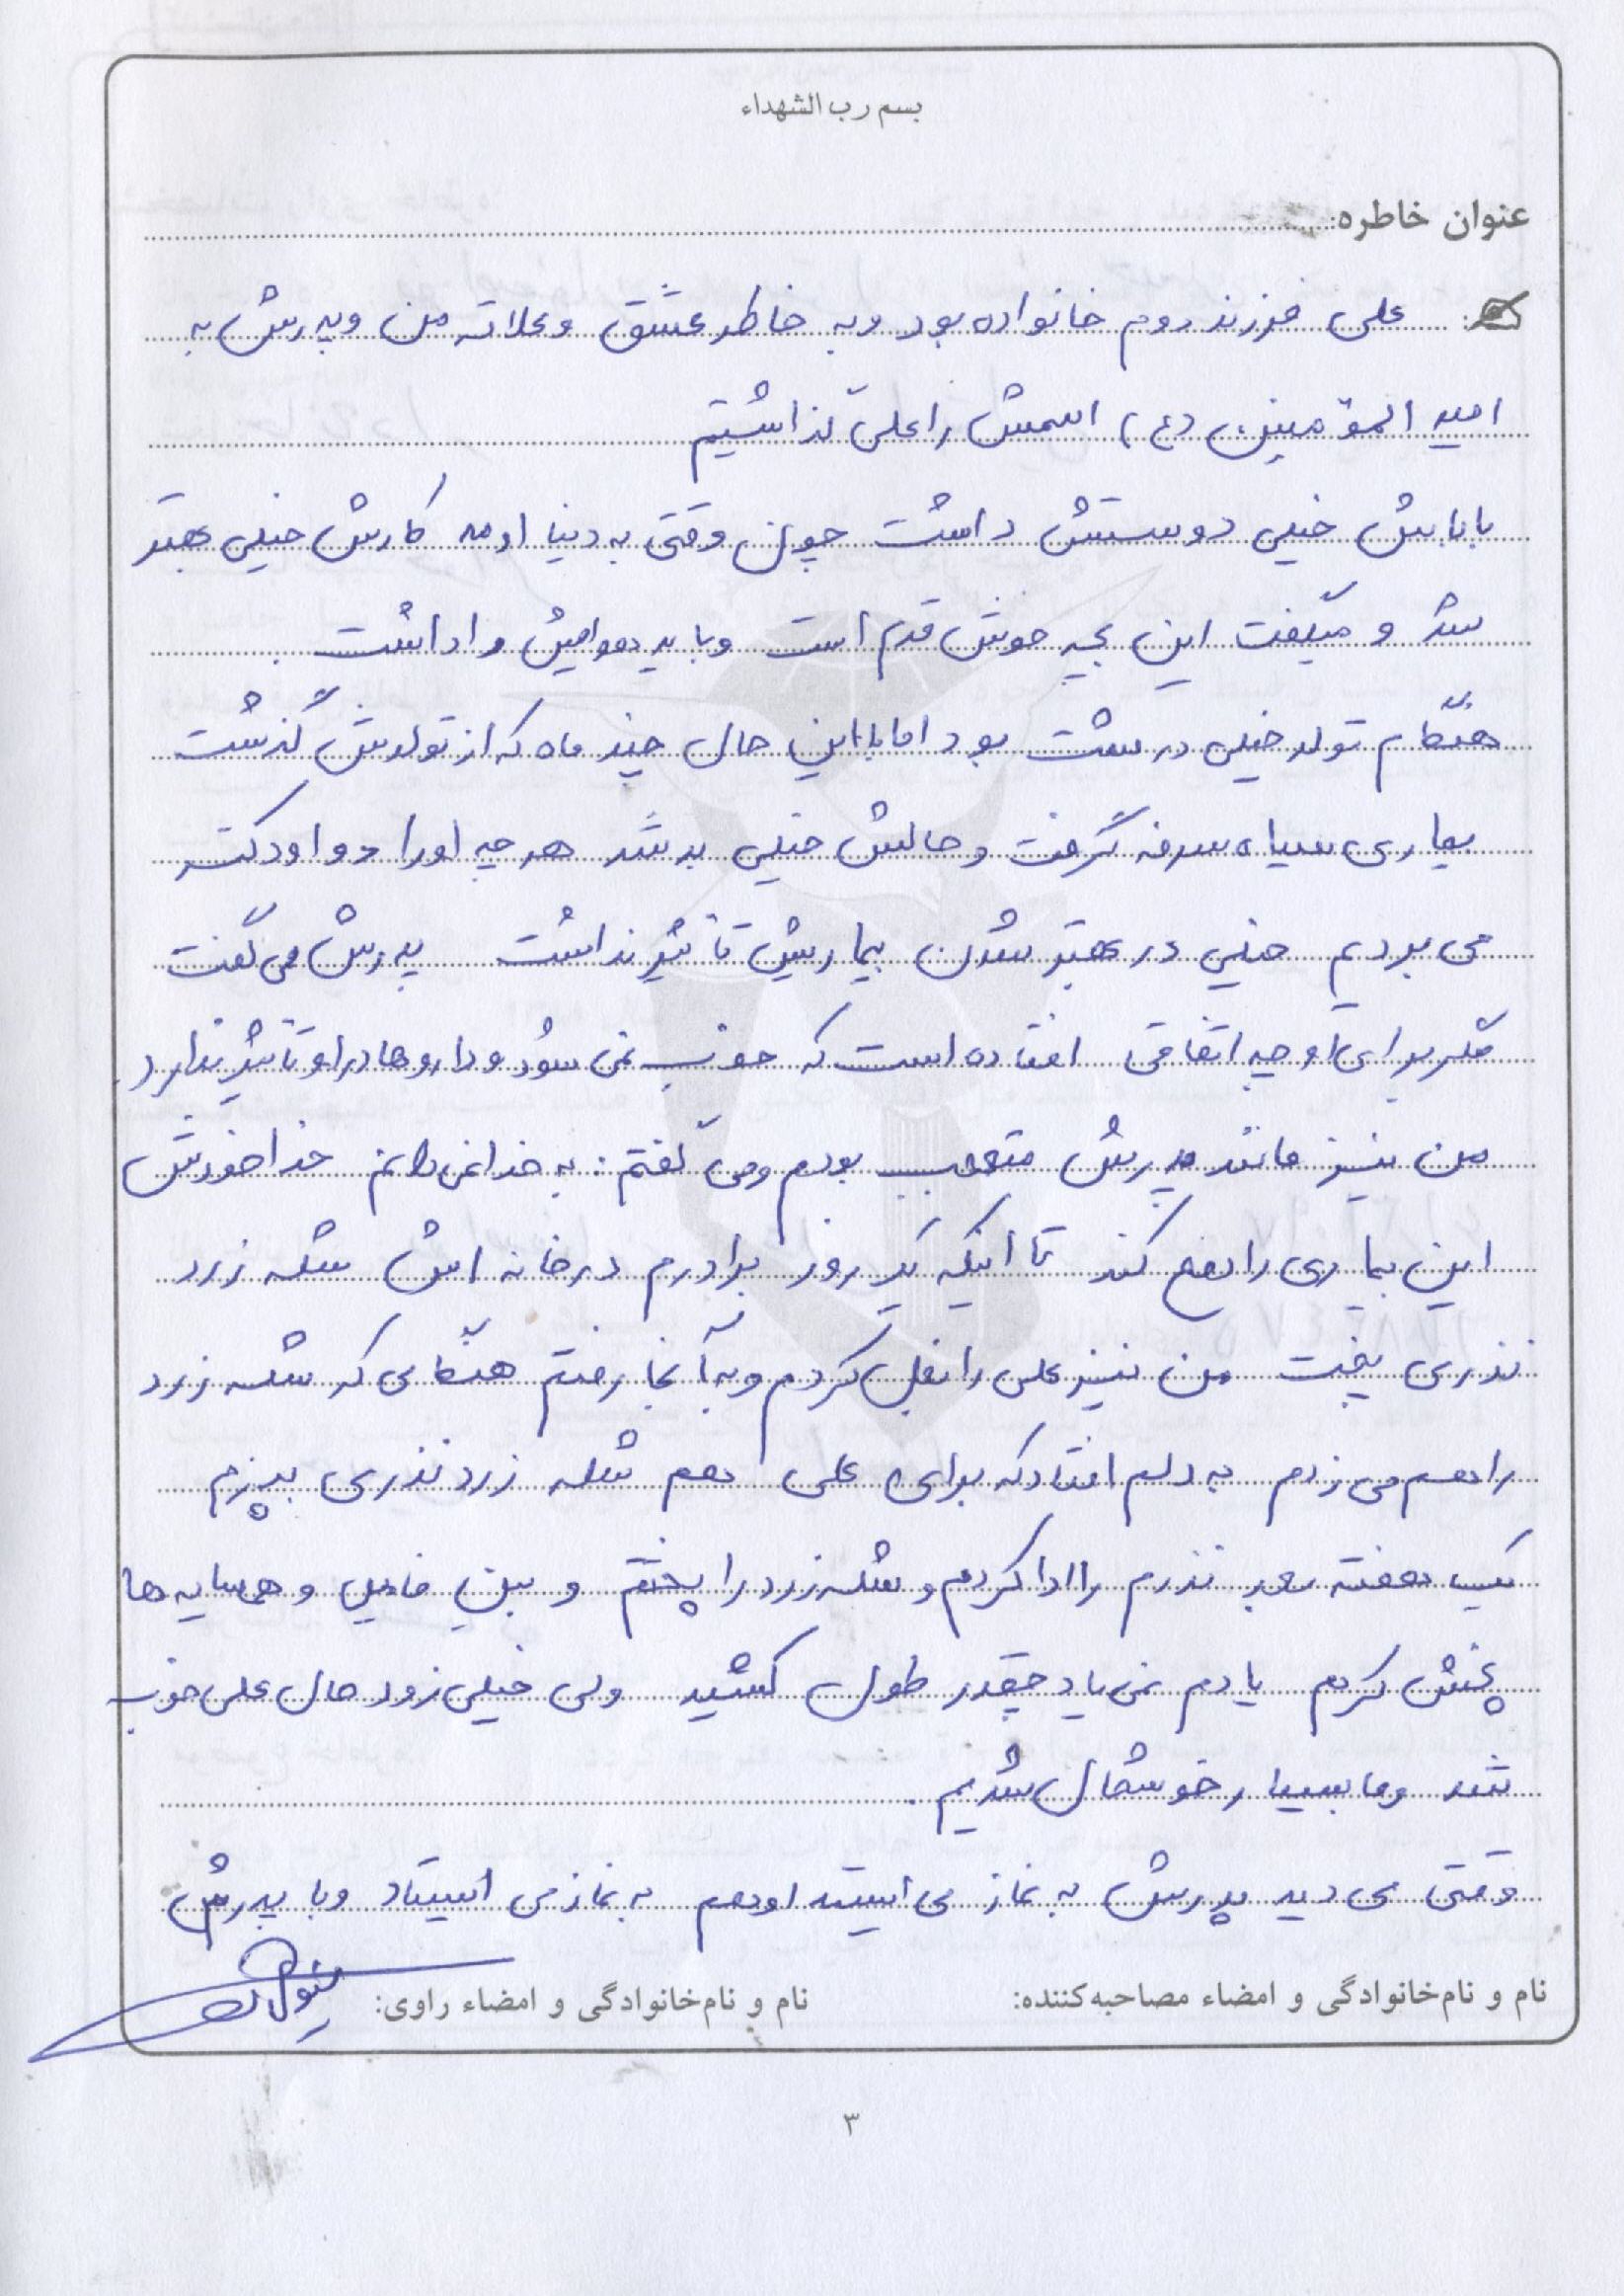 بسم رب الشهداء
عنوان خاطره:
علی فرزند دوم خانواده بود و به خاطر عشق و علاقه من و پدرش به
امیر المؤمنین (ع) اسمش را علی گذاشتیم
باباش خیلی دوستش داشت چون وقتی به دنیا اومد کارش خیلی بهتر
شد و میگفت این بچه خوش قدم است و باید هوایش را داشت.
هنگام تولد خیلی درشت بود اما بااین حال چند ماه که از تولدش گذشت
بیماری سیاه سرفه گرفت و حالش خیلی بد شد هر چه او را دوا و دکتر
می بردیم خیلی در بهتر شدن بیماریش تاثیر نداشت پدرش می گفت
مگر برای او چه اتفاقی افتاده است که خوب نمی شود و داروها در او تاثیر ندارد
من نیز مانند پدرش متعجب بودم و می گفتم: به خدا نمی دانم خدا خودش
این بیماری را دفع کند تا اینکه یک روز برادرم در خانه اش شله زرد
نذری پخت من نیز علی را بغل کردم و به آنجا رفتم هنگامی که شله زرد
را هم می زدم به دلم افتاد که برای علی هم شله زرد نذری بپزم
یک هفته بعد نذرم را ادا کردم و شله زرد را پختم و بین فامیل و همسایه ها
پخش کردم یادم نمی یاد چقدر طول کشید ولی خیلی زود حال علی خوب
شد و ما بسیار خوشحال شدیم.
وقتی می دید پدرش به نماز می ایستد او هم به نماز می ایستاد و با پدرش
نام و نام‌خانوادگی و امضاء مصاحبه‌کننده:
نام و نام‌خانوادگی و امضاء راوی:
۳